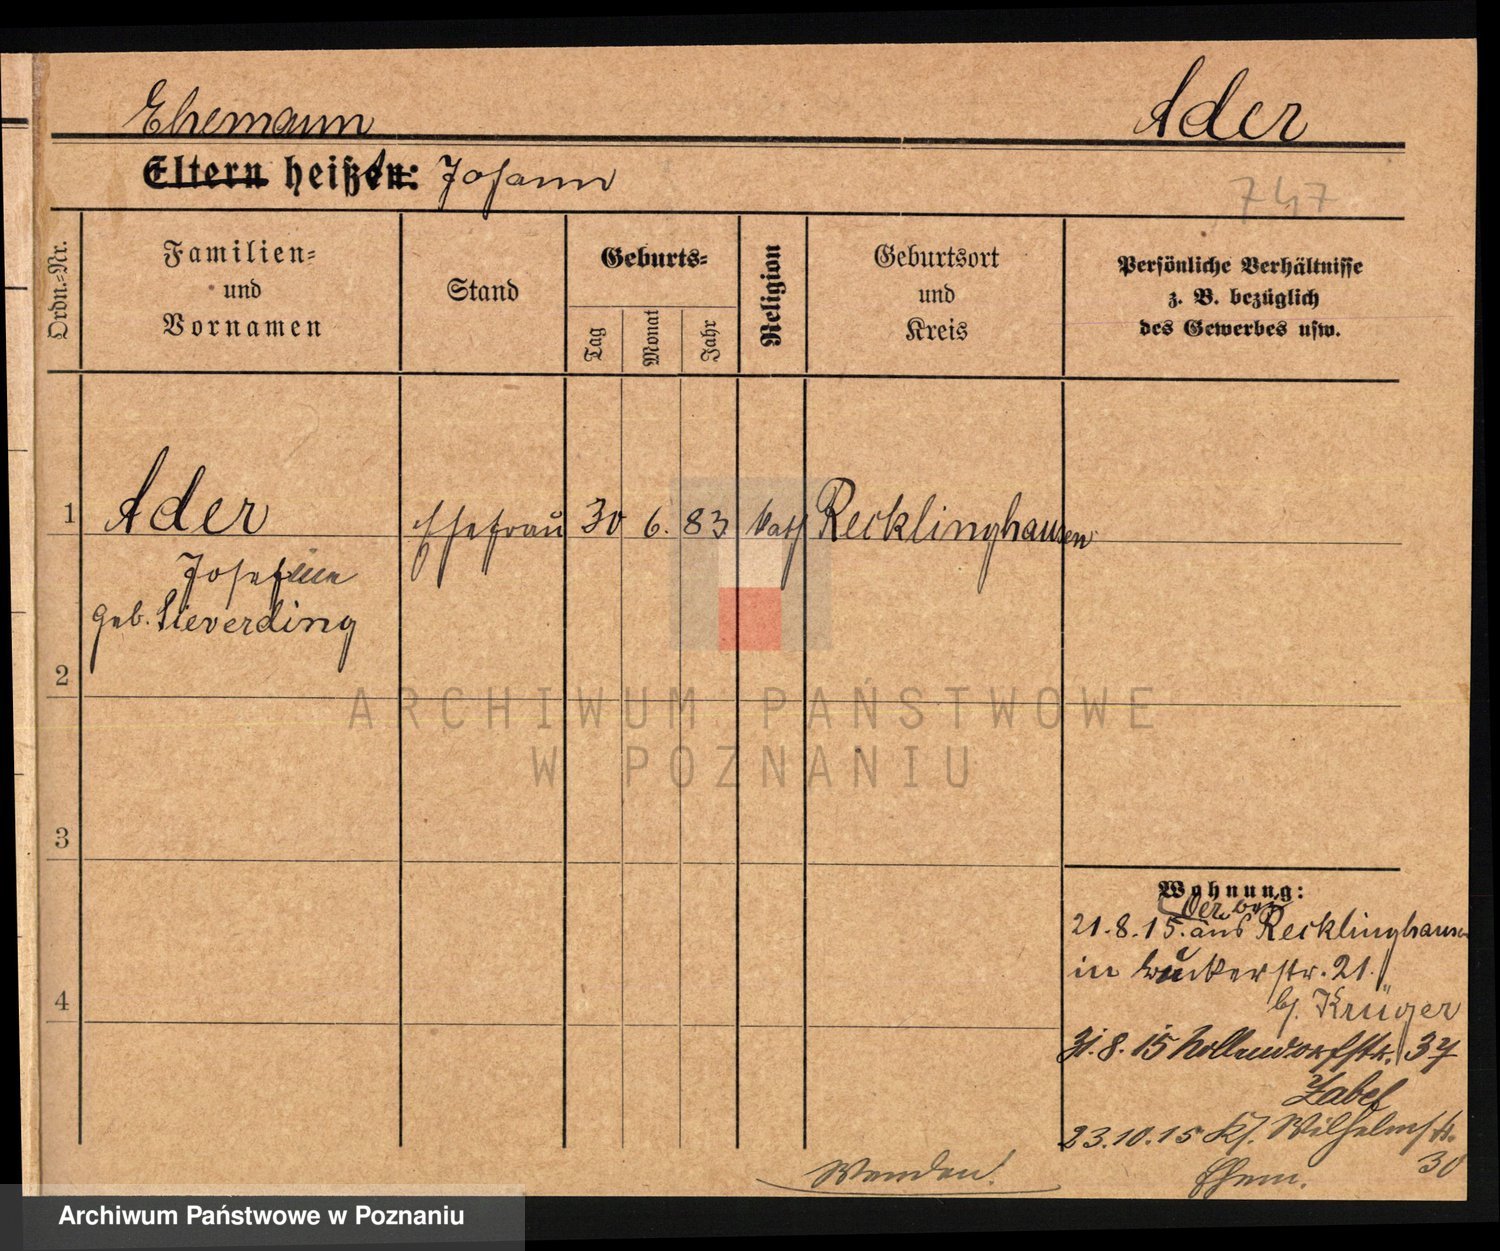 Ehemann
Ader
Eltern heißen: Johann
747
Ordn.-Nr.
Familien-
und
Vornamen
Stand
Geburts-
Tag
Monat
Jahr
Religion
Geburtsort
und
Kreis
Persönliche Verhältnisse
z. B. bezüglich
des Gewerbes usw.
1 Ader Ehefrau 30 6. 83 kath Recklinghausen
Josefine
geb. Sieverding
2
ARCHIWUM PAŃSTWOWE
W POZNANIU
3
Wohnung:
Oer bei
21.8.15. aus Recklinghausen
in 21.
4
b/. Krüger
31.8.15 Nollendorfstr. 37
Zabel
23.10.15 Kl. Wilhelmstr.
30
Ehem.
Wenden!
Archiwum Państwowe w Poznaniu